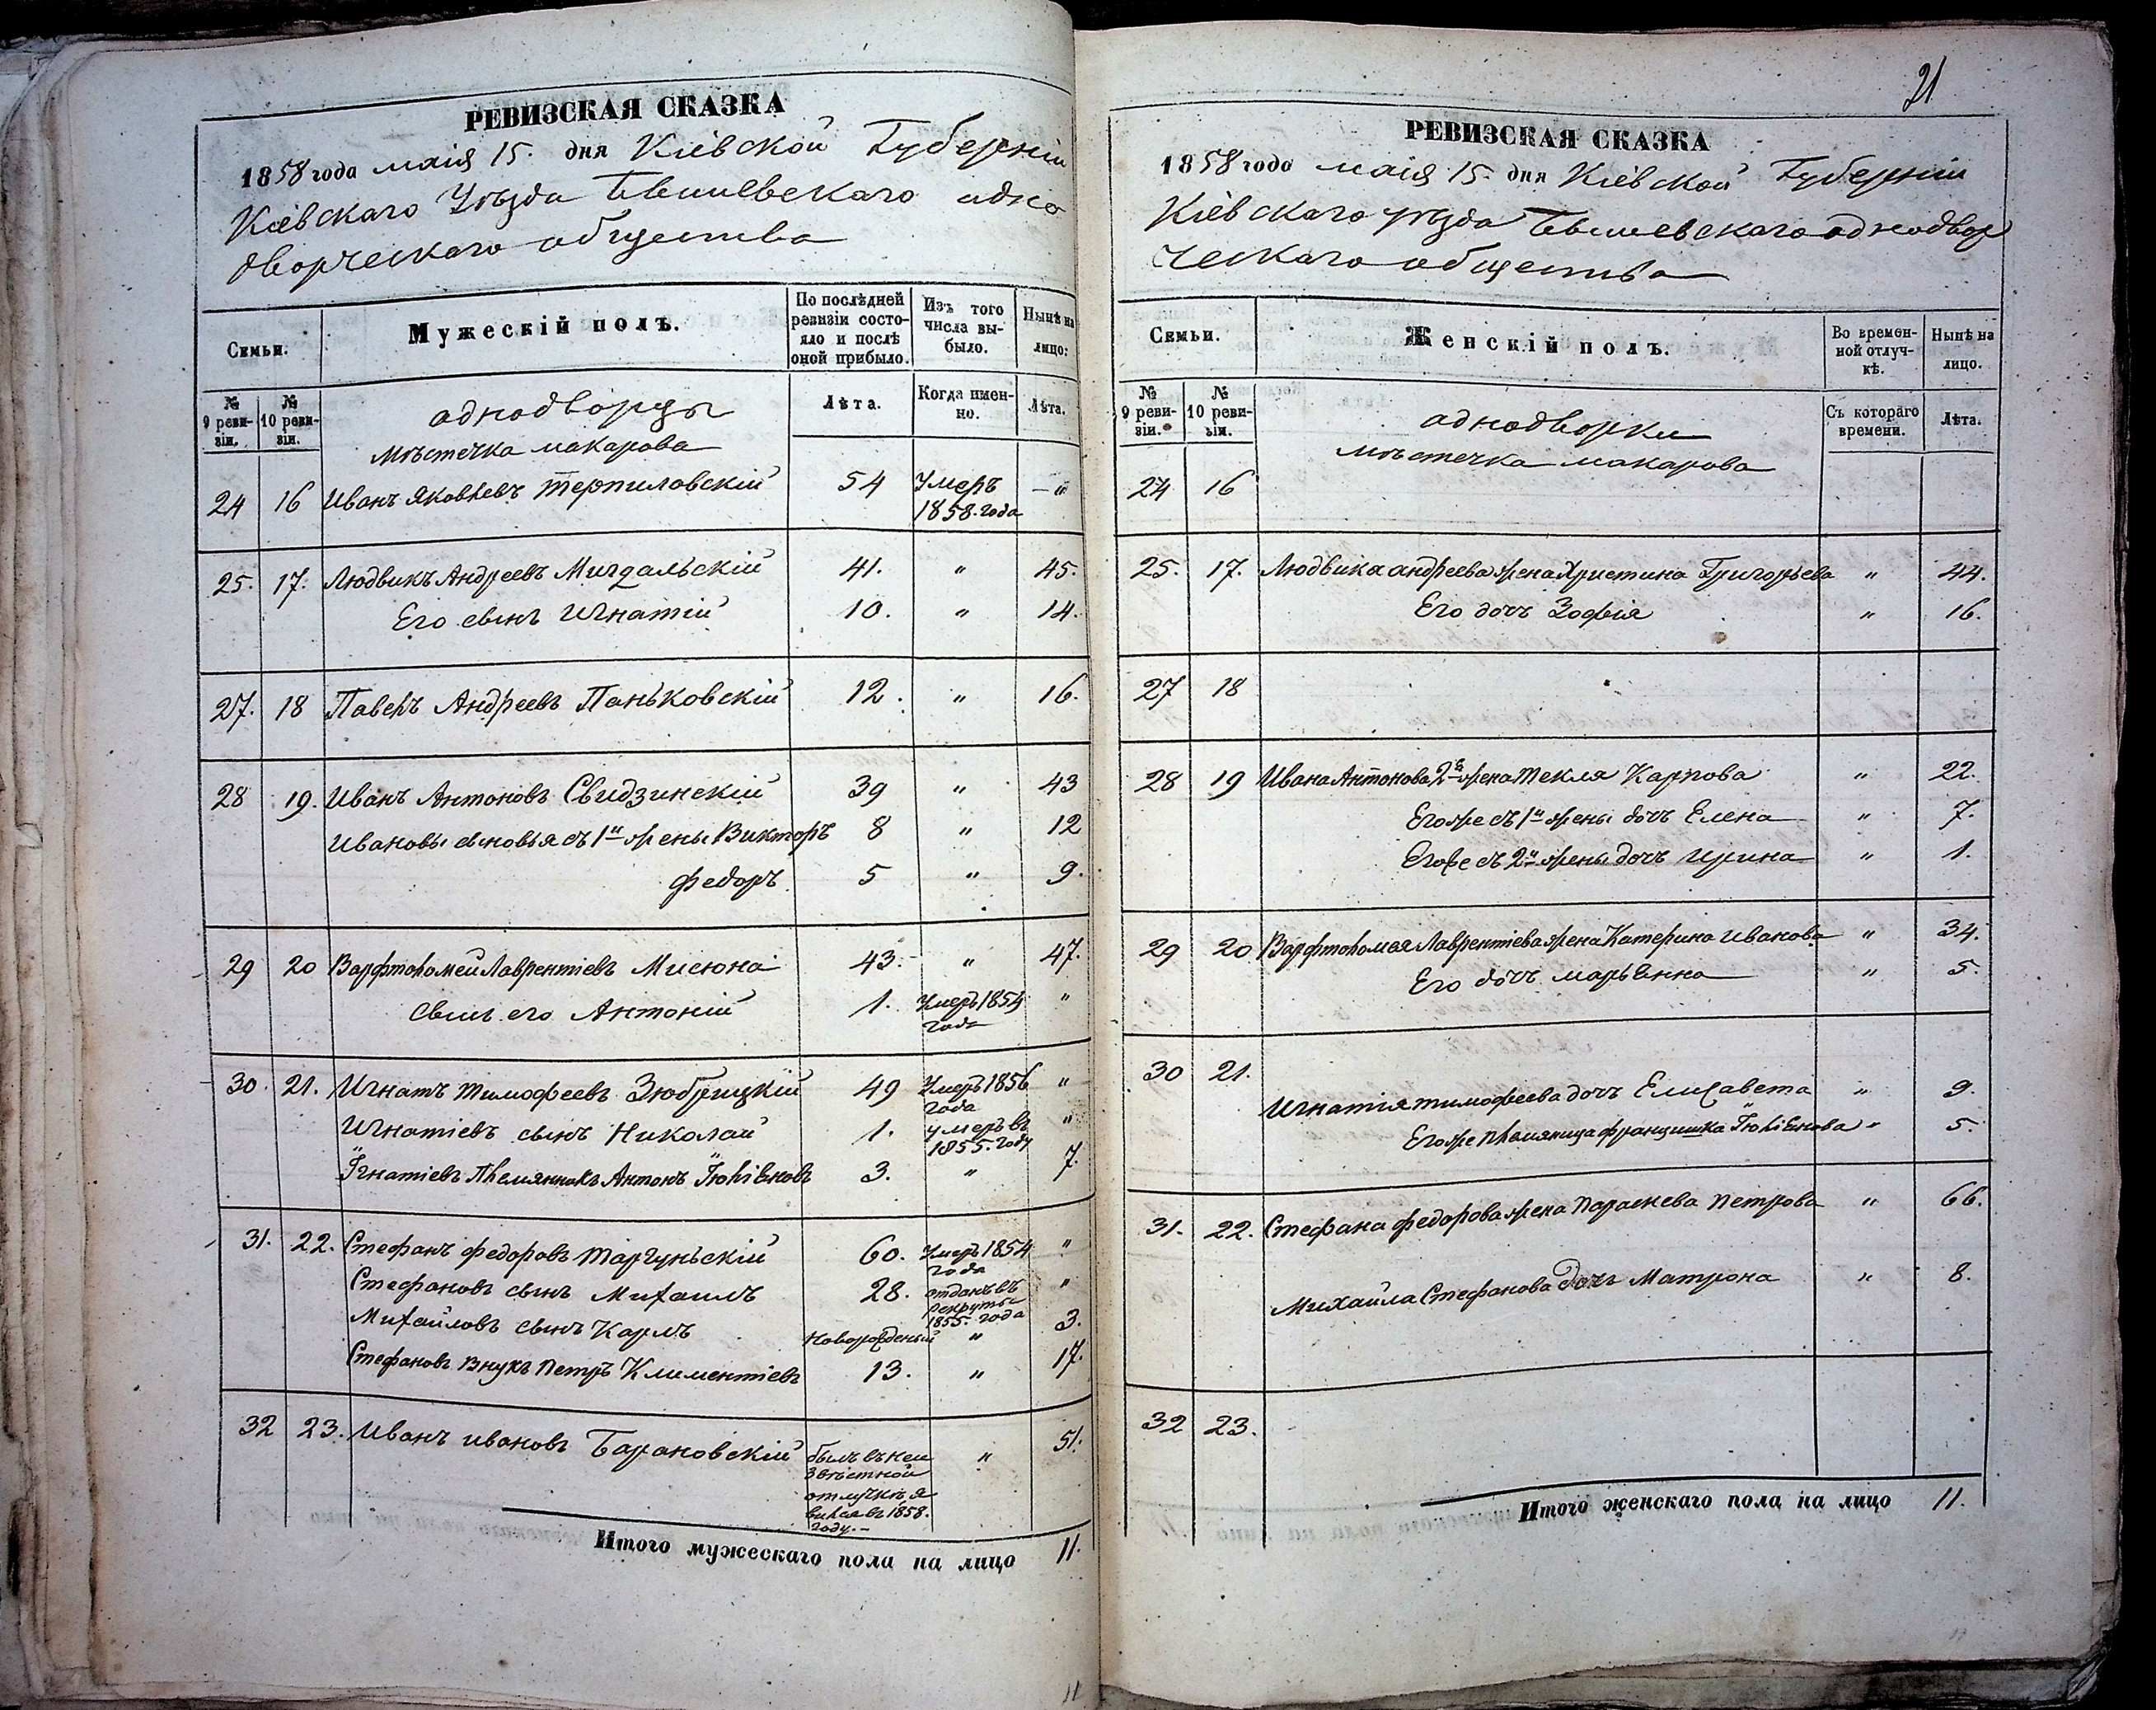 РЕВИЗСКАЯ СКАЗКА
1858 года маія 15. дня Кіевской Губерніи
Кіевскаго Уѣзда Бышевскаго одно
дворческаго общества
Семьи.
Мужескій полъ.
По послѣдней ревизіи состояло и послѣ оной прибыло.
Изъ того числа выбыло.
Нынѣ на лицо:
№ 9 ревизіи.
№ 10 ревизіи.
однодворцы
мѣстечка макарова
Лѣта.
Когда именно.
Лѣта.
24 16 Иванъ Яковлевъ Терпиловскій 54 Умеръ 1858. года — "
25. 17. Людвикъ Андреевъ Мигдальскій 41. " 45.
Его сынъ Игнатій 10. " 14.
27. 18 Павелъ Андреевъ Паньковскій 12. " 16.
28 19. Иванъ Антоновъ Свидзинскій 39 " 43
Ивановы сыновья съ 1й жены Викторъ 8 " 12
Федоръ 5 " 9.
29 20 Варфтоломей Лаврентіевъ Мисюна 43. " 47.
Сынъ его Антоній 1. Умеръ 1854 года "
30. 21. Игнатъ Тимофеевъ Зюбрицкій 49 Умеръ 1856 года "
Игнатіевъ сынъ Николай 1. умеръ въ 1855. году "
Їгнатіевъ племянникъ Антонъ Їюліяновъ 3. " 7.
31. 22. Стефанъ федоровъ Таргуньскій 60. Умеръ 1854 года "
Стефановъ сынъ Михаилъ 28. отданъ въ рекруты 1855. года "
Михайловъ сынъ Карлъ Новорожденый " 3.
Стефановъ внукъ Петръ Климентіевъ 13. " 17.
32 23. Иванъ ивановъ Барановскій былъ въ неизвѣстной отлучкѣ, явился въ 1858. году. — " 51.
Итого мужескаго пола на лицо 11.
11
21
РЕВИЗСКАЯ СКАЗКА
1858 года маія 15. дня Кіевской Губерніи
Кіевскаго уѣзда Бышевскаго однодвор
ческаго общества
Семьи.
Женскій полъ.
Во временной отлучкѣ.
Нынѣ на лицо.
№ 9 ревизіи.
№ 10 ревизіи.
однодворки
мѣстечка макарова
Съ котораго времени.
Лѣта.
24 16
25. 17. Людвика андреева жена Христина Григорьева " 44.
Его дочъ Зофія " 16.
27 18
28 19 Ивана Антонова 2я жена Текля Карпова " 22.
Егоже съ 1й жены дочъ Елена " 7.
Егоже съ 2й жены дочъ ирина " 1.
29 20. Варфтоломея Лаврентіева жена Катерина Иванова " 34.
Его дочъ марьянна " 5.
30 21.
Игнатія тимофеева дочъ Елисавета " 9.
Егоже племяница францишка Їюліянова " 5.
31. 22. Стефана федорова жена Параскева Петрова " 66.
Михайла Стефанова Дочъ Матрона " 8.
32 23.
Итого женскаго пола на лицо 11.